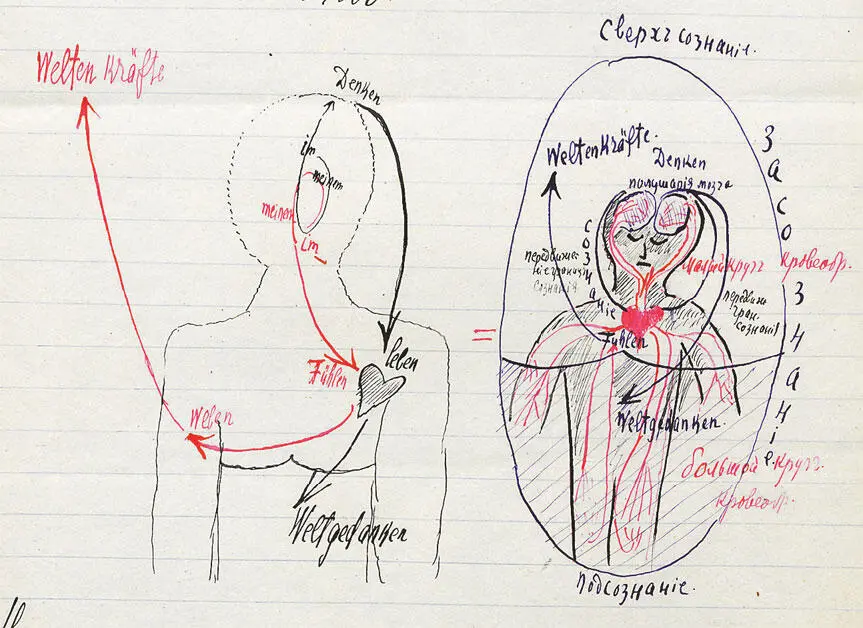 Welten Kräfte
Denken
im
meinem
meinen
im
Fühlen
leben
Wellen
Weltgedanken
=
Сверхъ сознаніе.
Weltenkräfte.
Denken
полушарія мозга
сознаніе
передвиже
ніе границы
сознанія
Малый Кругъ Кровеобр.
передвиж.
гран.
сознанія
Fühlen
Weltgedanken.
большой Кругъ.
Кровеобр.
Засознаніе
Подсознаніе.